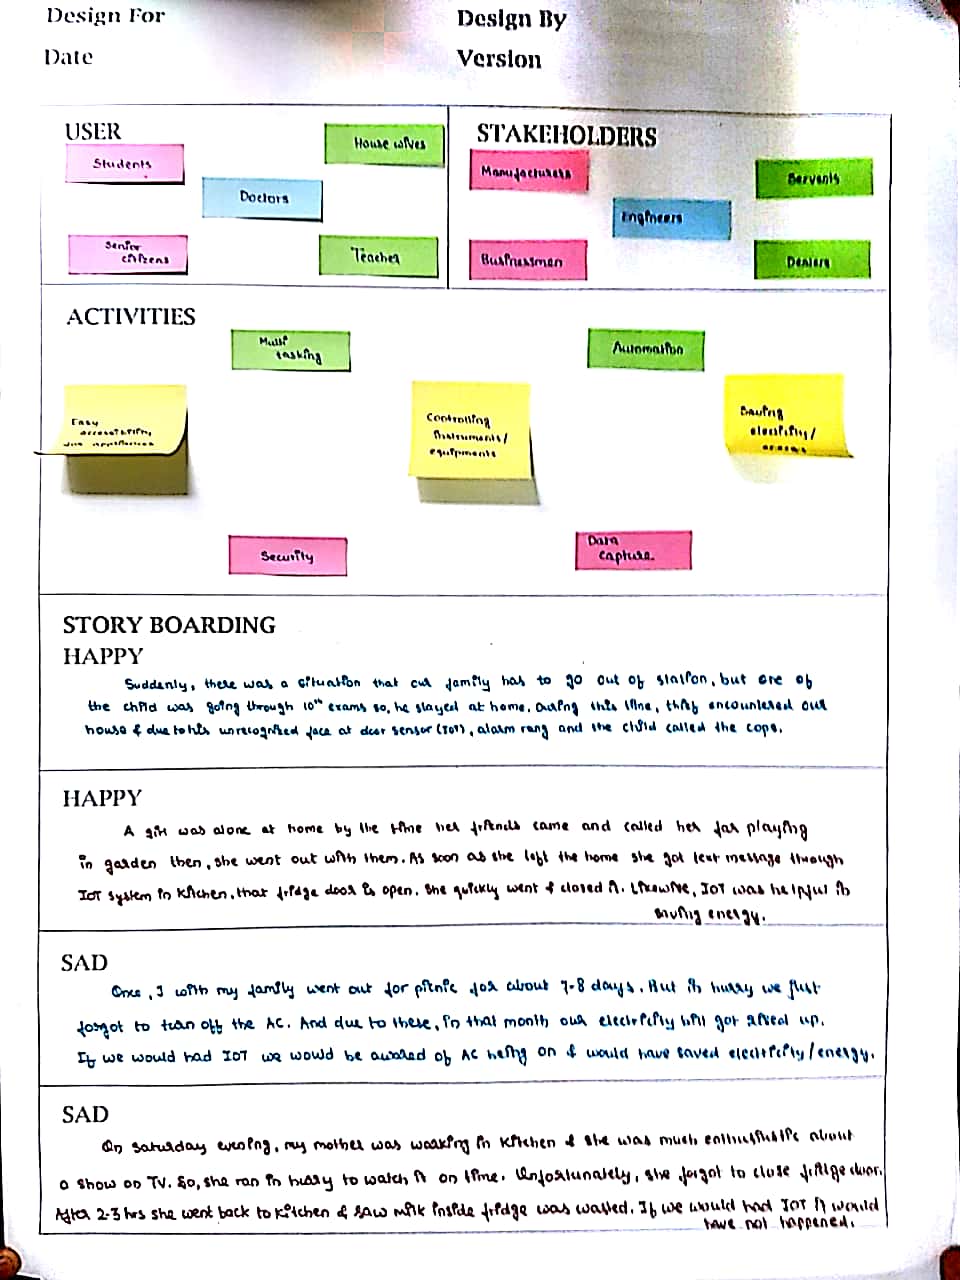 Design For
Design By
Date
Version
USER
Students
House wives
Doctors
Senior
citizens
Teacher
STAKEHOLDERS
Manufacturers
Servents
Engineers
Businessman
Dealers
ACTIVITIES
Multi
tasking
Automation
Easy
accessibility
appliances
Controlling
Instruments/
equipments
Saving
electricity/
energy
Security
Data
capture
STORY BOARDING
HAPPY
Suddenly, there was a situation that our family has to go out of station, but one of
the child was going through 10th exams so, he stayed at home. During this time, thief encountered our
house & due to his unrecognized face at door sensor (IoT), alarm rang and the child called the cops.
HAPPY
A girl was alone at home by the time her friends came and called her for playing
in garden then, she went out with them. As soon as she left the home she got text message through
IoT system in kitchen, that fridge door is open. She quickly went & closed it. Likewise, IoT was helpful in
saving energy.
SAD
Once, I with my family went out for picnic for about 7-8 days. But in hurry we just
forgot to turn off the AC. And due to these, in that month our electricity bill got up.
If we would had IoT we would be awared of AC being on & would have saved electricity/energy.
SAD
On saturday evening, my mother was working in kitchen & she was much enthusiastic about
a show on TV. So, she ran in hurry to watch it on time. Unfortunately, she forgot to close fridge door.
After 2-3 hrs she went back to kitchen & saw milk inside fridge was wasted. If we would had IoT it would
have not happened.